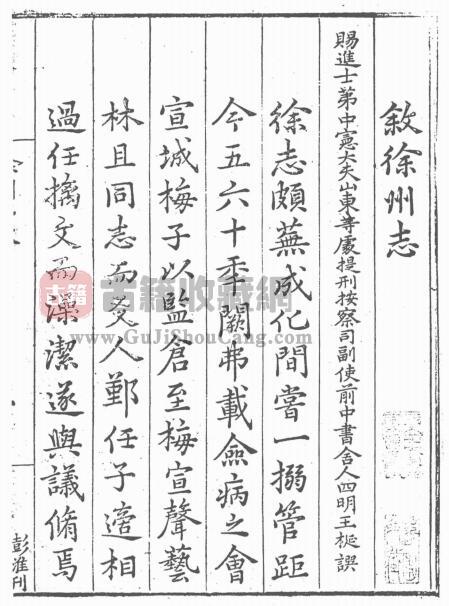 敘徐州志
賜進士第中憲大夫山東等處提刑按察司副使前中書舍人四明王梴譔
徐志頗蕪成化間嘗一搦管距
今五六十季闕弗載僉病之會
宣城梅子以監倉至梅宣聲藝
林且同志而爻人鄞任子適相
過任擒文而澡潔遂與議脩焉
彭淮刊
古籍
古籍收藏網
www.GuJiShouCang.com